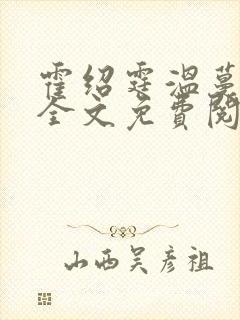 霍绍霆温蔓
全文免費閱
山西吴彦祖